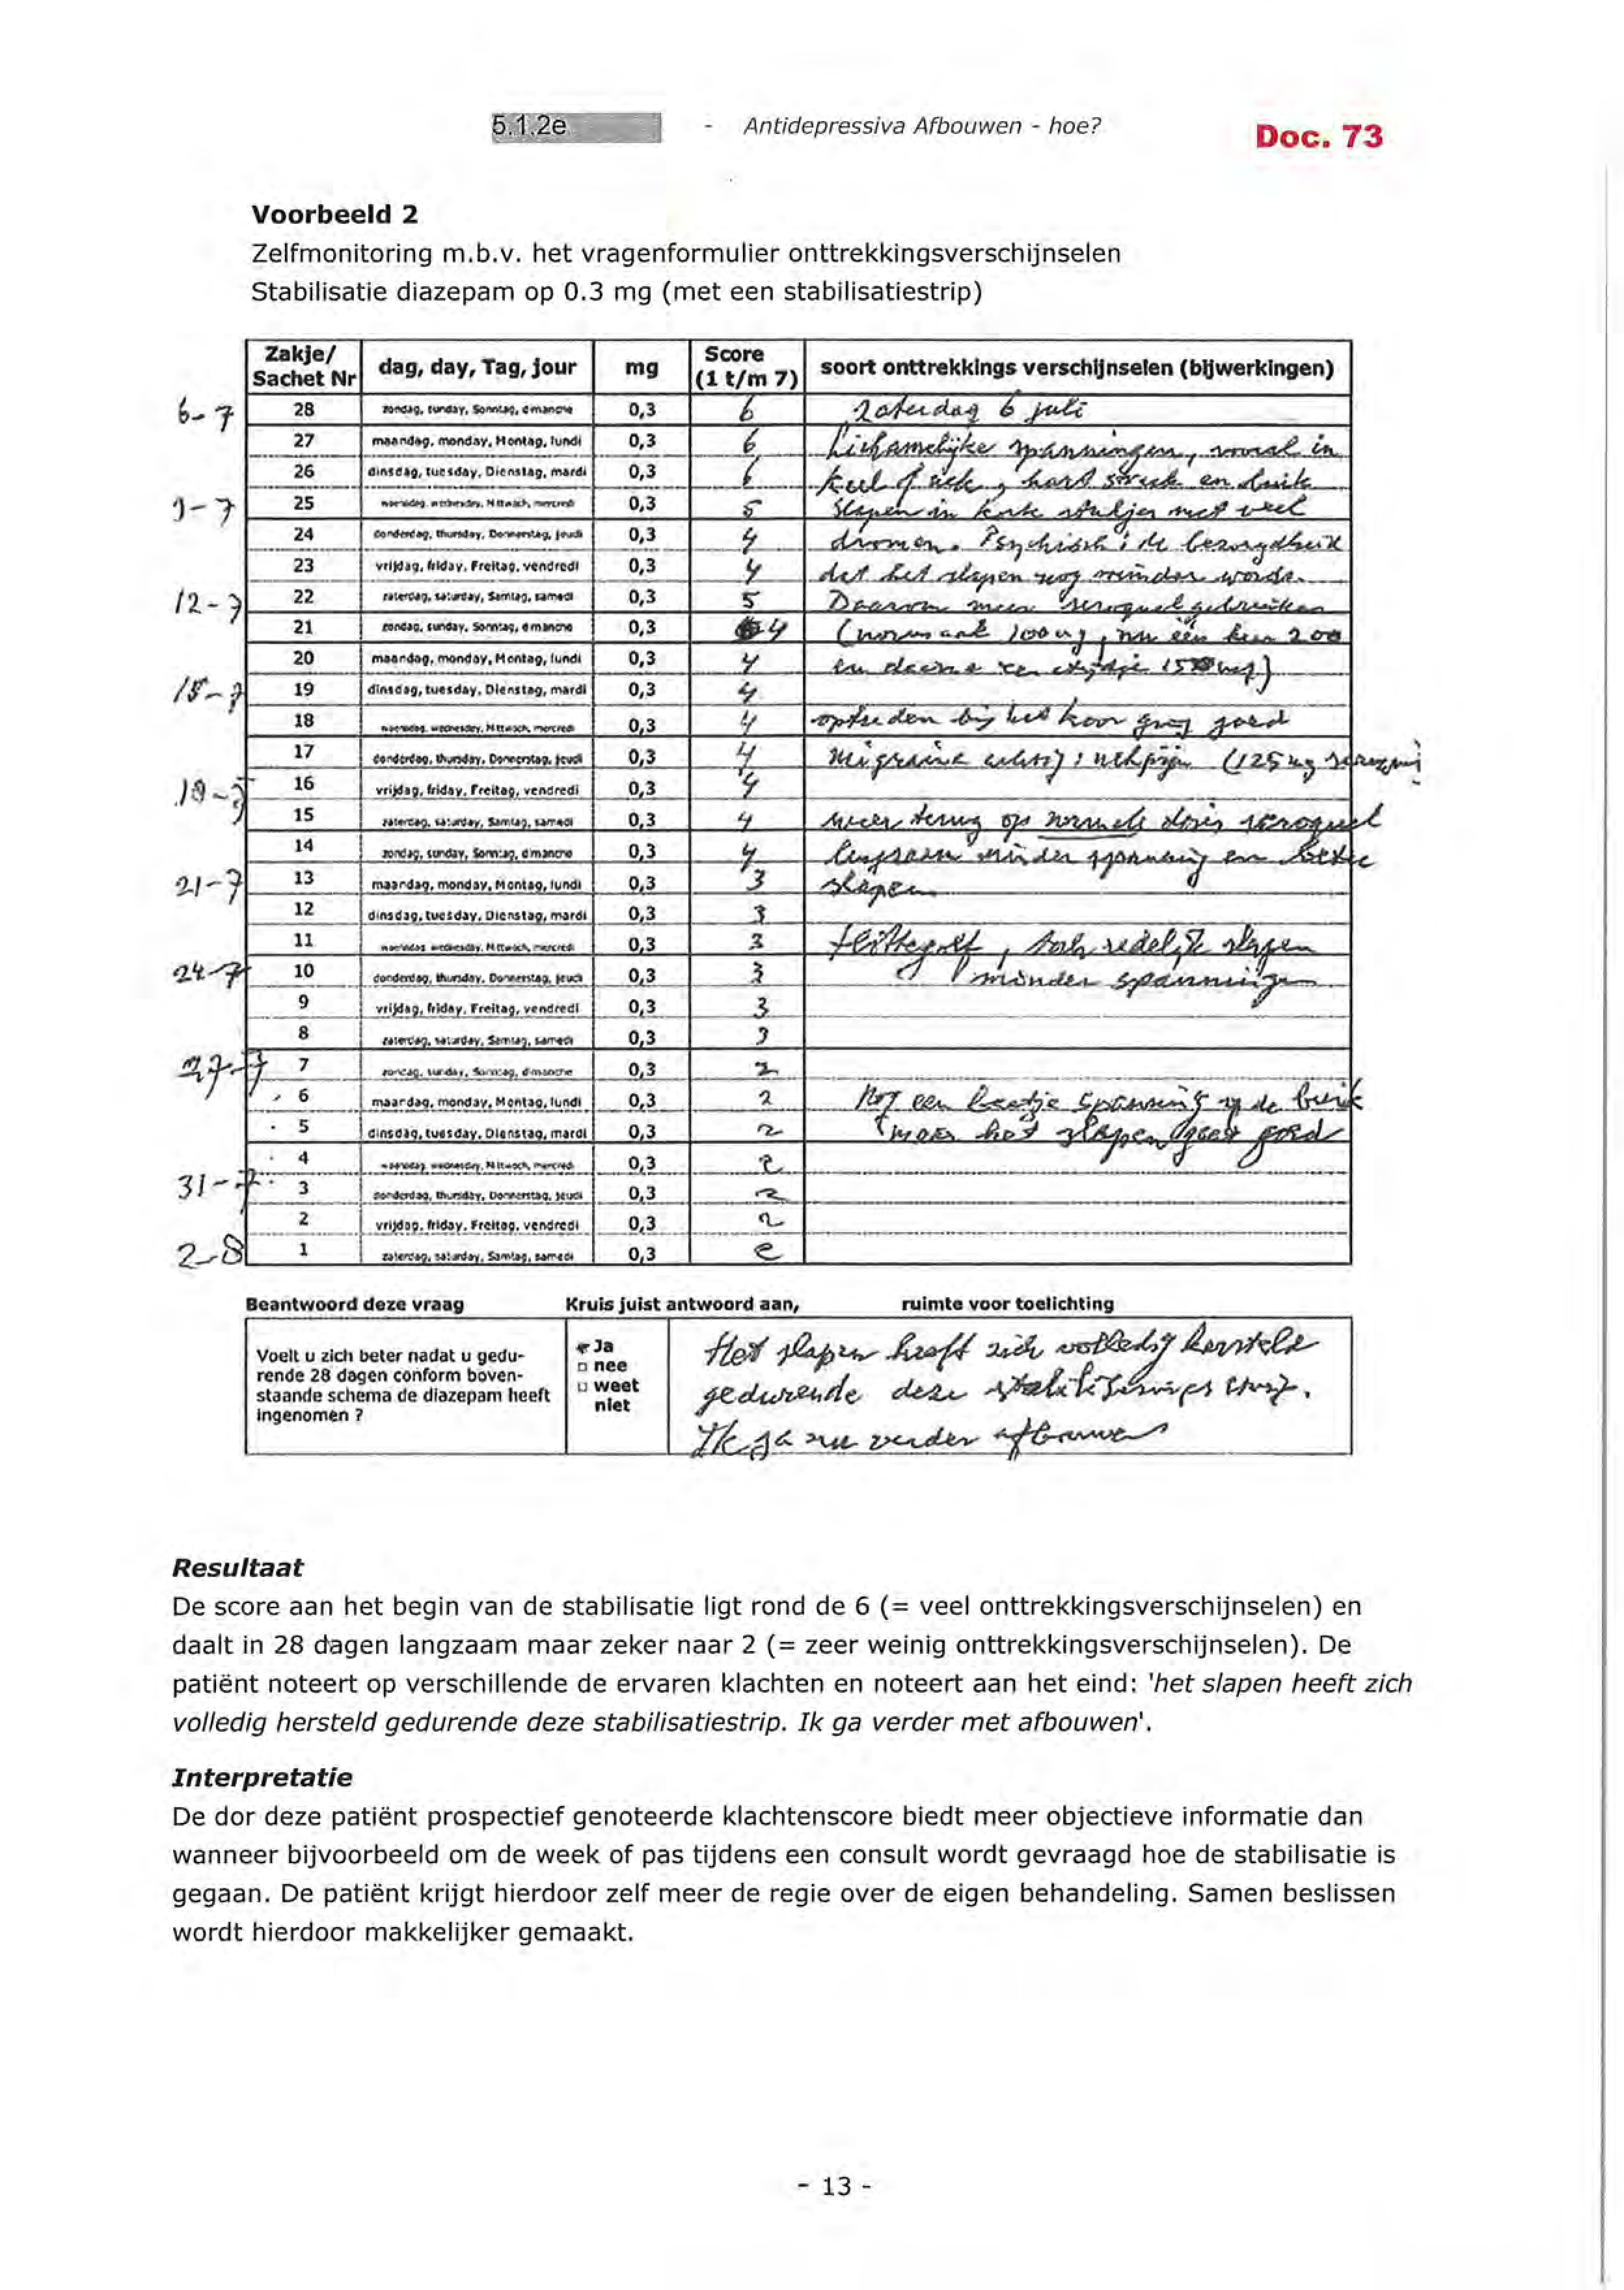 5.1.2e - Antidepressiva Afbouwen - hoe? Doc. 73
Voorbeeld 2
Zelfmonitoring m.b.v. het vragenformulier onttrekkingsverschijnselen
Stabilisatie diazepam op 0.3 mg (met een stabilisatiestrip)
Zakje/ Sachet Nr dag, day, Tag, jour mg Score (1 t/m 7) soort onttrekkings verschijnselen (bijwerkingen)
6-7 28 zondag, sunday, Sonntag, dimanche 0,3 6 Zaterdag 6 juli
27 maandag, monday, Montag, lundi 0,3 6 Lichamelijke spanningen, vooral in
26 dinsdag, tuesday, Dienstag, mardi 0,3 6 keel en buik
9-7 25 woensdag, wednesday, Mittwoch, mercredi 0,3 5 Slapen in korte stukjes met veel
24 donderdag, thursday, Donnerstag, jeudi 0,3 4 dromen. Psychisch: de bezorgdheid
23 vrijdag, friday, Freitag, vendredi 0,3 4 dat het slapen nog minder wordt.
12-7 22 zaterdag, saturday, Samtag, samedi 0,3 5 Daarom meer seroquel gebruiken
21 zondag, sunday, Sonntag, dimanche 0,3 4 (normaal 100 mg, nu één keer 200
20 maandag, monday, Montag, lundi 0,3 4 en daarna een tijdje 150 mg)
15-7 19 dinsdag, tuesday, Dienstag, mardi 0,3 4
18 woensdag, wednesday, Mittwoch, mercredi 0,3 4 optreden bij het koor ging goed
17 donderdag, thursday, Donnerstag, jeudi 0,3 4 Migraine nekpijn (125 mg
18-7 16 vrijdag, friday, Freitag, vendredi 0,3 4
15 zaterdag, saturday, Samtag, samedi 0,3 4 weer terug op normale dosis seroquel
14 zondag, sunday, Sonntag, dimanche 0,3 4 langzaam minder spanning en beter
21-7 13 maandag, monday, Montag, lundi 0,3 3 slapen
12 dinsdag, tuesday, Dienstag, mardi 0,3 3
11 woensdag, wednesday, Mittwoch, mercredi 0,3 3 Hittegolf, toch redelijk slapen
24-7 10 donderdag, thursday, Donnerstag, jeudi 0,3 3 minder spanningen
9 vrijdag, friday, Freitag, vendredi 0,3 3
8 zaterdag, saturday, Samtag, samedi 0,3 3
27-7 7 zondag, sunday, Sonntag, dimanche 0,3 2
6 maandag, monday, Montag, lundi 0,3 2 Nog een beetje spanning op de buik
5 dinsdag, tuesday, Dienstag, mardi 0,3 2 maar het slapen gaat goed
4 woensdag, wednesday, Mittwoch, mercredi 0,3 2
31-7 3 donderdag, thursday, Donnerstag, jeudi 0,3 2
2 vrijdag, friday, Freitag, vendredi 0,3 2
2-8 1 zaterdag, saturday, Samtag, samedi 0,3 2
Beantwoord deze vraag Kruis juist antwoord aan, ruimte voor toelichting
Voelt u zich beter nadat u gedu-
rende 28 dagen conform boven-
staande schema de diazepam heeft
ingenomen ?
Ja
nee
weet
niet
Het slapen heeft zich volledig hersteld
gedurende deze stabilisatings strip.
Ik ga nu verder afbouwen
Resultaat
De score aan het begin van de stabilisatie ligt rond de 6 (= veel onttrekkingsverschijnselen) en
daalt in 28 dagen langzaam maar zeker naar 2 (= zeer weinig onttrekkingsverschijnselen). De
patiënt noteert op verschillende de ervaren klachten en noteert aan het eind: 'het slapen heeft zich
volledig hersteld gedurende deze stabilisatiestrip. Ik ga verder met afbouwen'.
Interpretatie
De dor deze patiënt prospectief genoteerde klachtenscore biedt meer objectieve informatie dan
wanneer bijvoorbeeld om de week of pas tijdens een consult wordt gevraagd hoe de stabilisatie is
gegaan. De patiënt krijgt hierdoor zelf meer de regie over de eigen behandeling. Samen beslissen
wordt hierdoor makkelijker gemaakt.
- 13 -